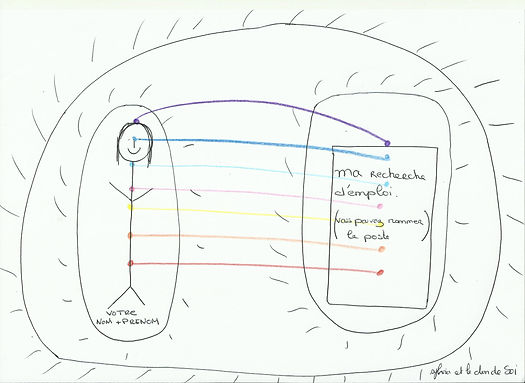 ma recherche
d'emploi.
(vous pouvez nommer
le poste)
VOTRE
NOM + PRENOM
et le don de Soi